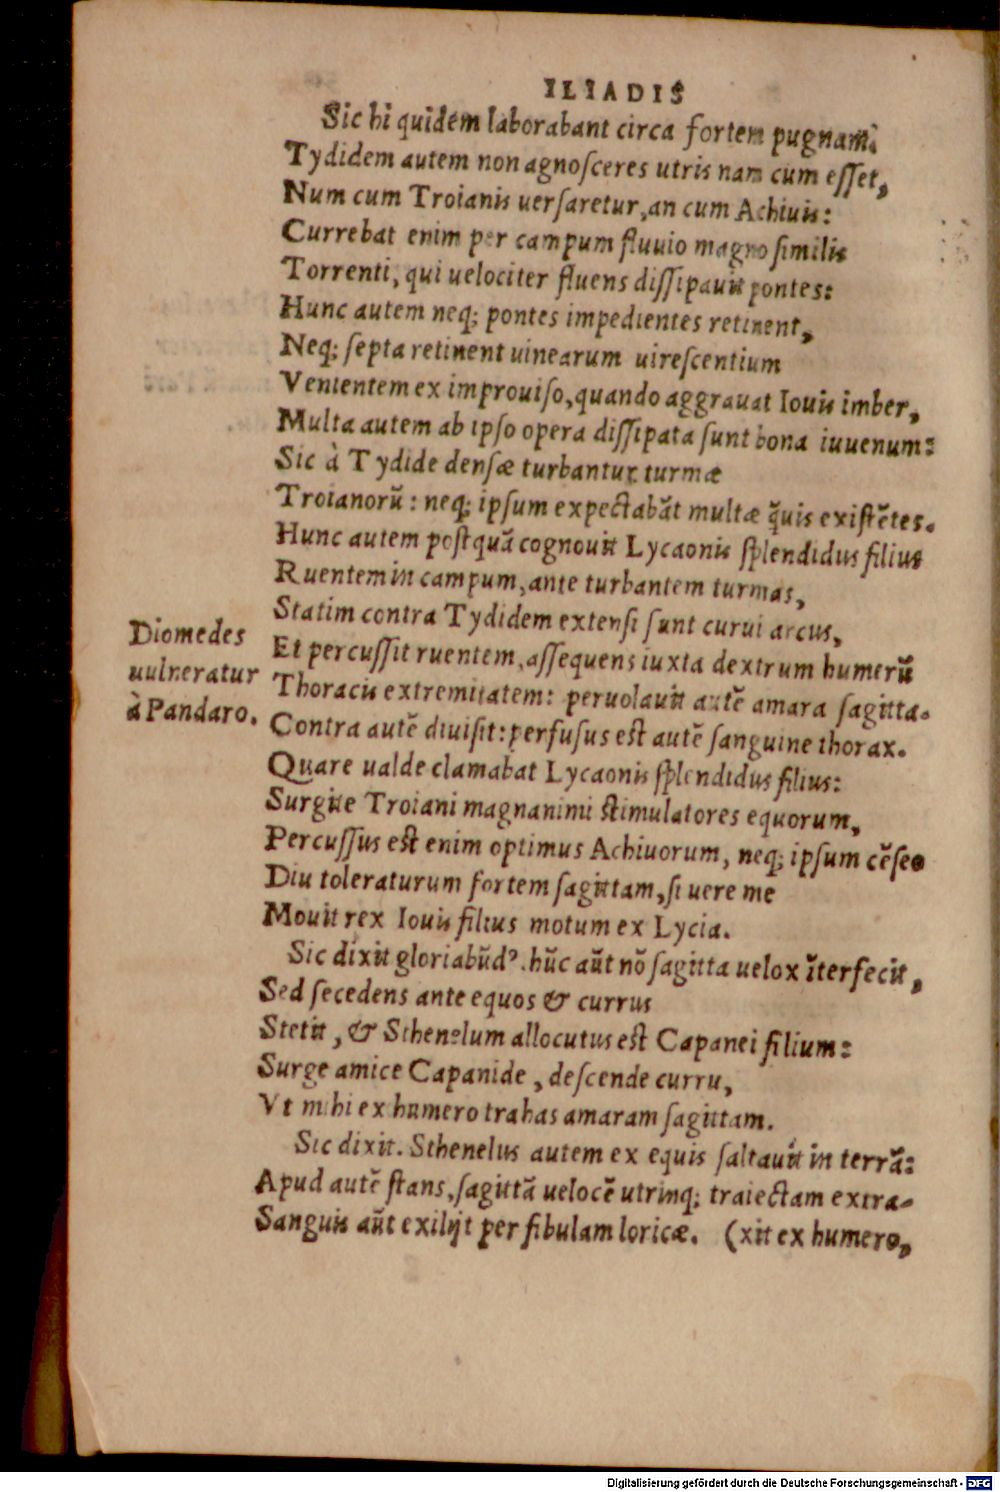 ILIADIS
Sic hi quidem laborabant circa fortem pugnam.
Tydidem autem non agnosceres utris nam cum esset,
Num cum Troianis uersaretur, an cum Achiuis:
Currebat enim per campum fluuio magno similis
Torrenti, qui uelociter fluens dissipauit pontes:
Hunc autem neq; pontes impedientes retinent,
Neq; septa retinent uinearum uirescentium
Venientem ex improuiso, quando aggrauat Iouis imber,
Multa autem ab ipso opera dissipata sunt bona iuuenum:
Sic à Tydide densæ turbantur turmæ
Troianorũ: neq; ipsum expectabãt multæ q̃uis existẽtes.
Hunc autem postquã cognouit Lycaonis splendidus filius
Ruentem in campum, ante turbantem turmas,
Statim contra Tydidem extensi sunt curui arcus,
Et percussit ruentem, assequens iuxta dextrum humerũ
Diomedes uulneratur à Pandaro.
Thoracis extremitatem: peruolauit autẽ amara sagitta.
Contra autẽ diuisit: perfusus est autẽ sanguine thorax.
Quare ualde clamabat Lycaonis splendidus filius:
Surgite Troiani magnanimi stimulatores equorum,
Percussus est enim optimus Achiuorum, neq; ipsum cẽseo
Diu toleraturum fortem sagittam, si uere me
Mouit rex Iouis filius motum ex Lycia.
Sic dixit gloriabũdꝰ. hũc aũt nõ sagitta uelox ĩterfecit,
Sed secedens ante equos & currus
Stetit, & Sthenelum allocutus est Capanei filium:
Surge amice Capanide, descende curru,
Vt mihi ex humero trahas amaram sagittam.
Sic dixit. Sthenelus autem ex equis saltauit in terrã:
Apud autẽ stans, sagittã uelocẽ utrinq; traiectam extra-
Sanguis aũt exilijt per fibulam loricæ. (xit ex humero,
Digitalisierung gefördert durch die Deutsche Forschungsgemeinschaft - DFG